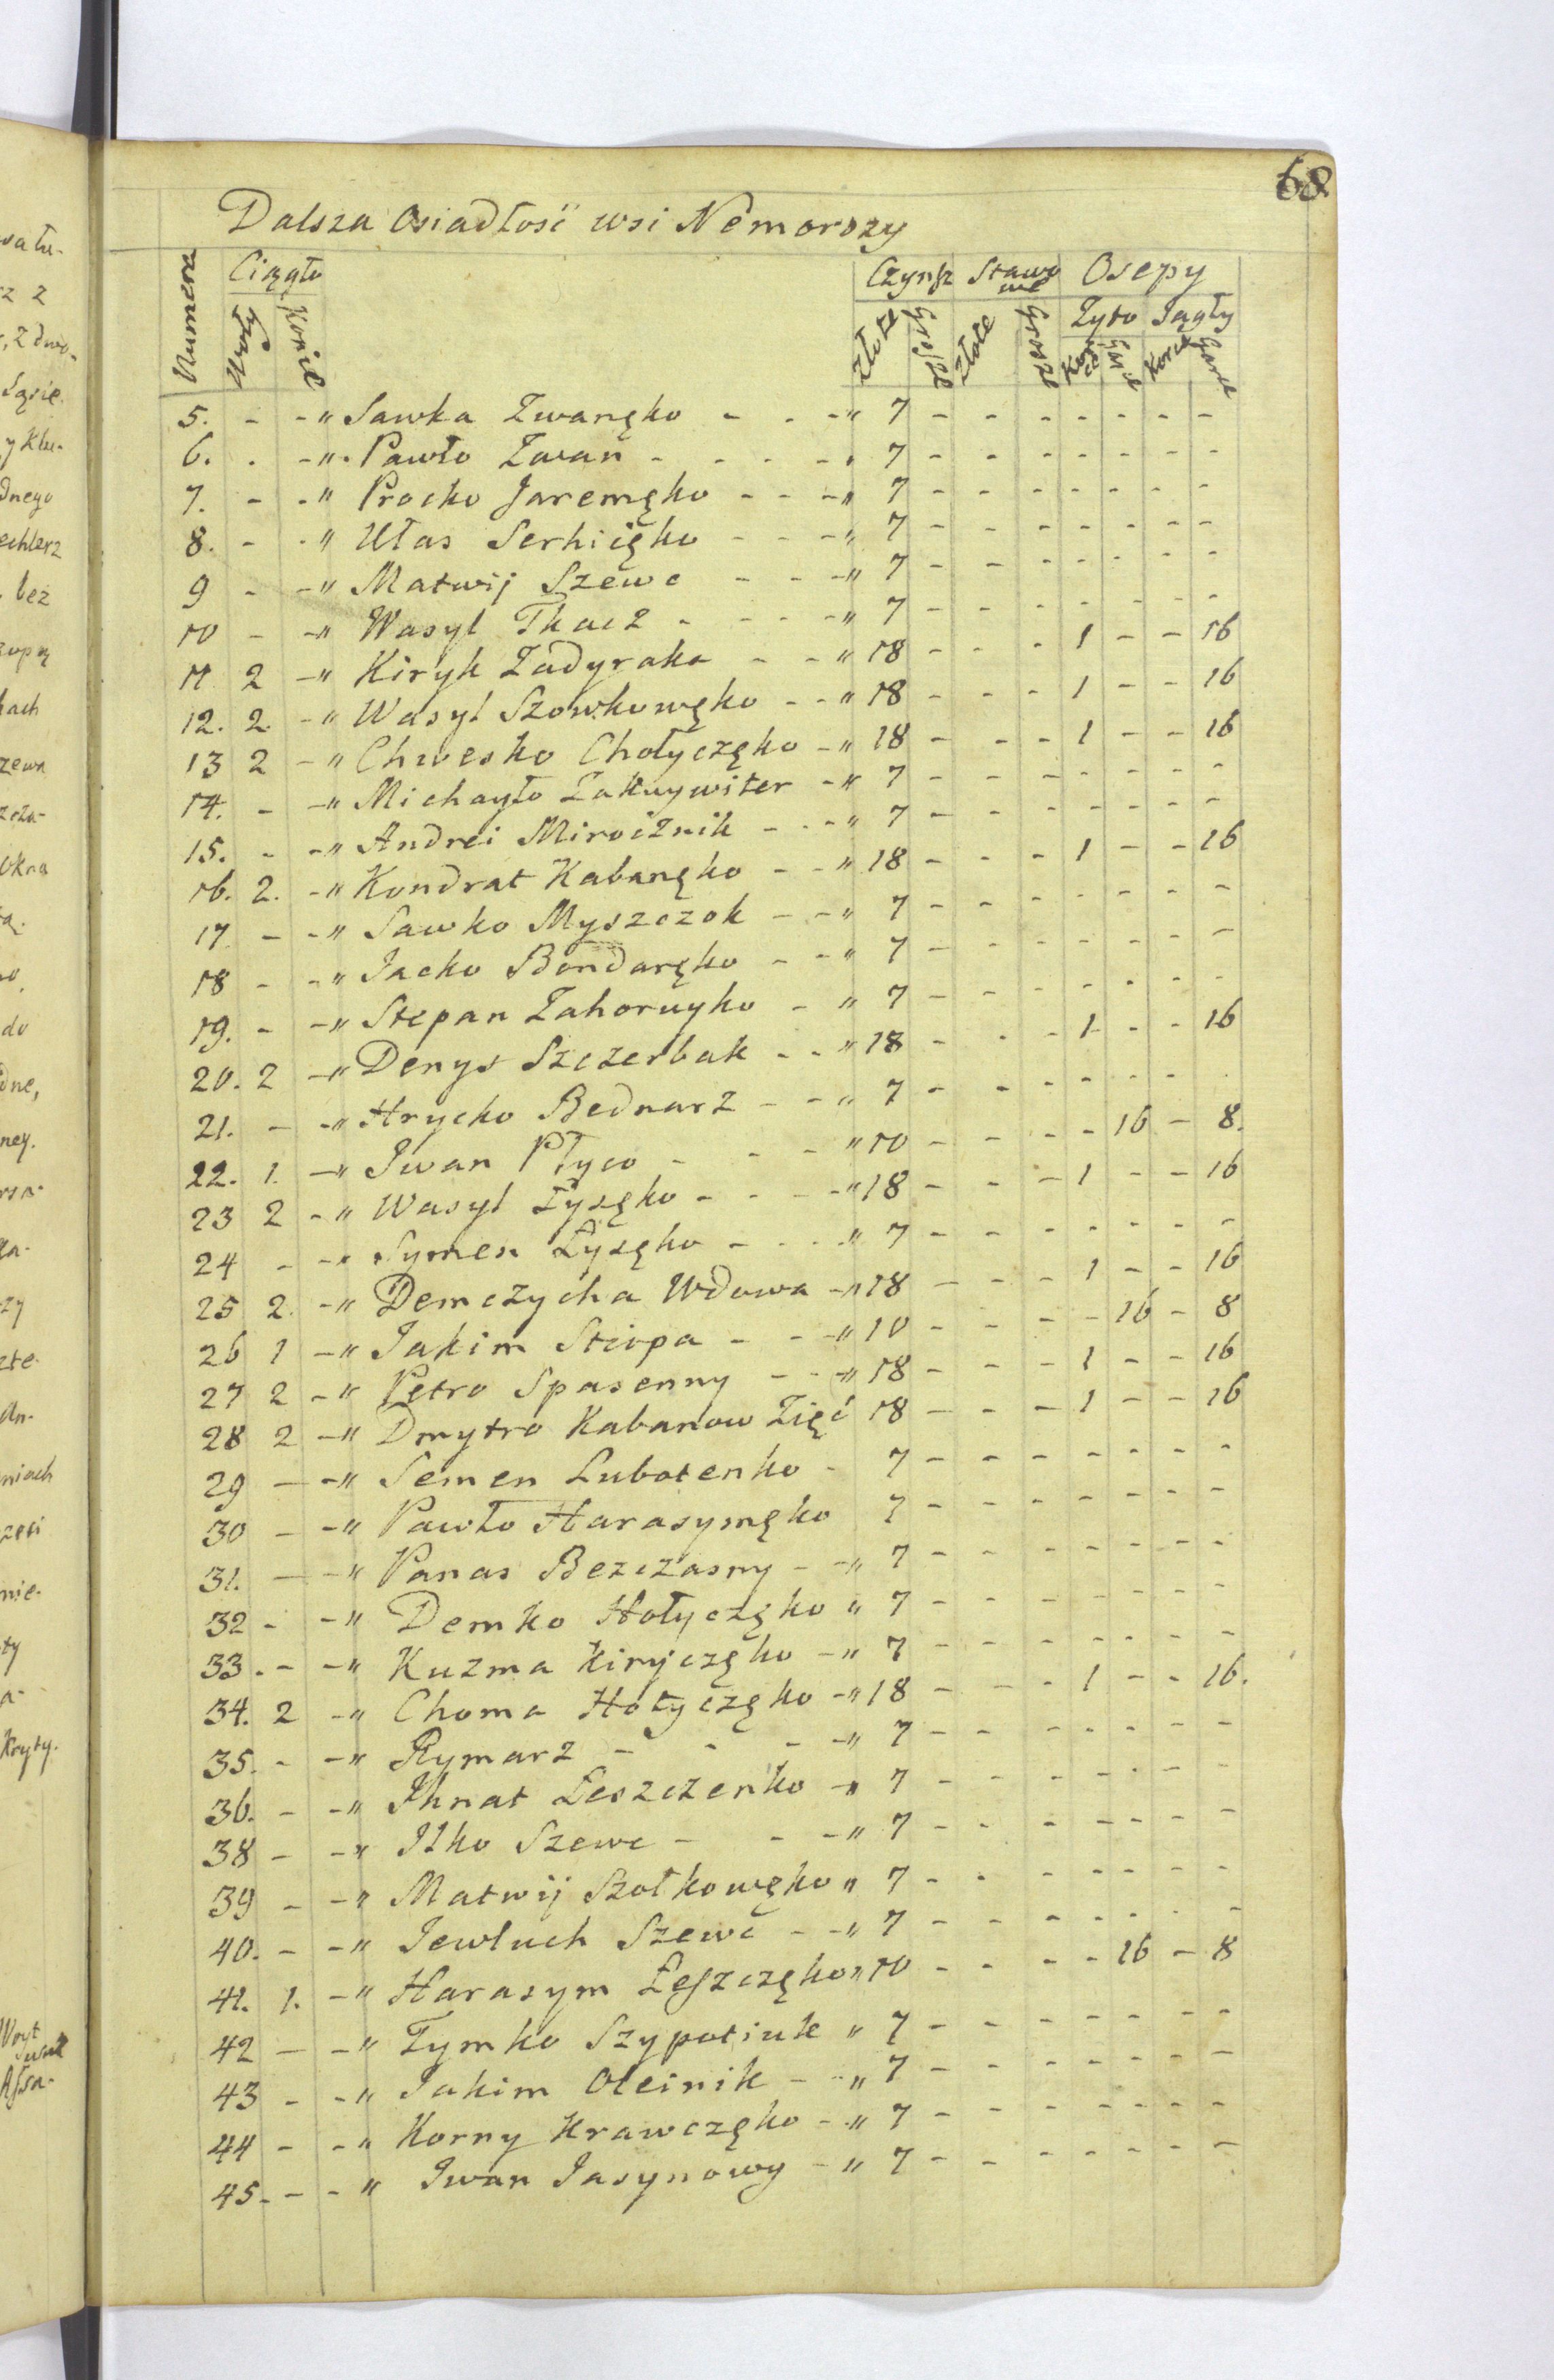 68
Dalsza Osiadłość wsi Nemorozy
Numera Ciągło Czynsz Stawowe Osepy
Woły Konie Złote Grosze Złote Grosze Żyto Jagły
Korce Garce Korce Garce
5. - - " Sawka Zwanęko - - - " 7 - - - - - - -
6. - - " Pawło Zwan - - - - " 7 - - - - - - -
7. - - " Procko Jaremęko - - - " 7 - - - - - - -
8. - - " Ułas Serhięko - - - " 7 - - - - - - -
9 - - " Matwij Szewc - - - " 7 - - - - - - -
10 - - " Wasyl Tkacz - - - - " 7 - - - - - - -
11 2 - " Kiryk Zadyraka - - " 18 - - - 1 - - 16
12. 2. - " Wasyl Szowkowęko - - " 18 - - - 1 - - 16
13 2 - " Chwesko Chołyczęko - " 18 - - - 1 - - 16
14. - - " Michayło Zakruywiter - " 7 - - - - - - -
15. - - " Andrei Mirocznik - - - " 7 - - - - - - -
16. 2. - " Kondrat Kabanęko - - " 18 - - - 1 - - 16
17 - - " Sawko Myszczok - - - " 7 - - - - - - -
18 - - " Jacko Bondaręko - - " 7 - - - - - - -
19. - - " Stepan Zahoruyko - " 7 - - - - - - -
20. 2 - " Denys Szczerbak - - " 18 - - - 1 - - 16
21. - - " Hrycko Bednarz - - " 7 - - - - - -
22. 1. - " Iwan Płyco - - - " 10 - - - - 16 - 8.
23 2 - " Wasyl Łysęko - - - - " 18 - - - 1 - - 16
24 - - " Symen Łysęko - - - - " 7 - - - - - - -
25 2. - " Demczycha Wdowa - " 18 - - - 1 - - 16
26 1 - " Jakim Sciopa - - - " 10 - - - - 16 - 8
27 2 - " Petro Spasenny - - - " 18 - - - 1 - - 16
28 2 - " Dmytro Kabanow Zięć 18 - - - 1 - - 16
29 - - " Semen Lubotenko - 7 - - - - - - -
30 - - " Pawło Harasymęko 7 - - - - - - -
31. - - " Panas Bezczasny - - " 7 - - - - - - -
32 - - " Demko Hołyczęko " 7 - - - - - - -
33. - - " Kuzma Kiryczęko - " 7 - - - - - - -
34. 2 - " Choma Hołyczęko - " 18 - - - 1 - - 16.
35. - - " Rymarz - - - - " 7 - - - - - - -
36. - - " Ihnat Leszczenko - " 7 - - - - - - -
38 - - " Ilko Szewc - - - " 7 - - - - - - -
39 - - " Matwij Szołkowęko " 7 - - - - - - -
40. - - " Jewłuch Szewc - - " 7 - - - - - - -
41. 1. - " Harasym Leszczęko " 10 - - - - 16 - 8
42 - - " Tymko Szypotiuk " 7 - - - - - - -
43 - - " Jakim Oleinik - - " 7 - - - - - - -
44 - - " Korny Krawczęko - " 7 - - - - - - -
45. - - " Iwan Jasynowy - " 7 - - - - - - -